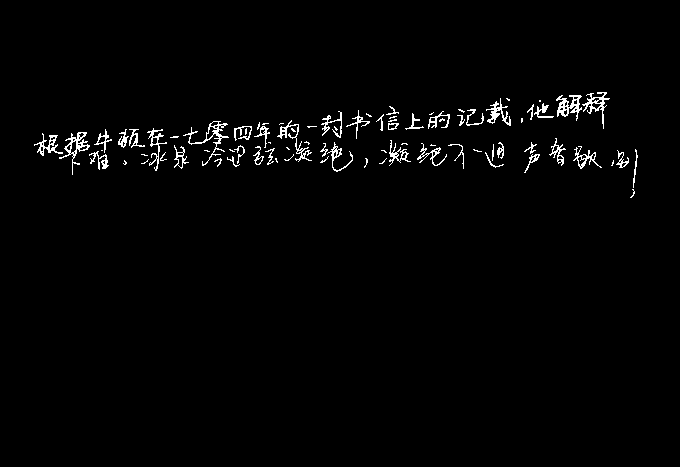 根据牛顿在一七零四年的一封书信上的记载,他解释
下难。冰泉冷涩弦凝绝,凝绝不通声暂歇。别